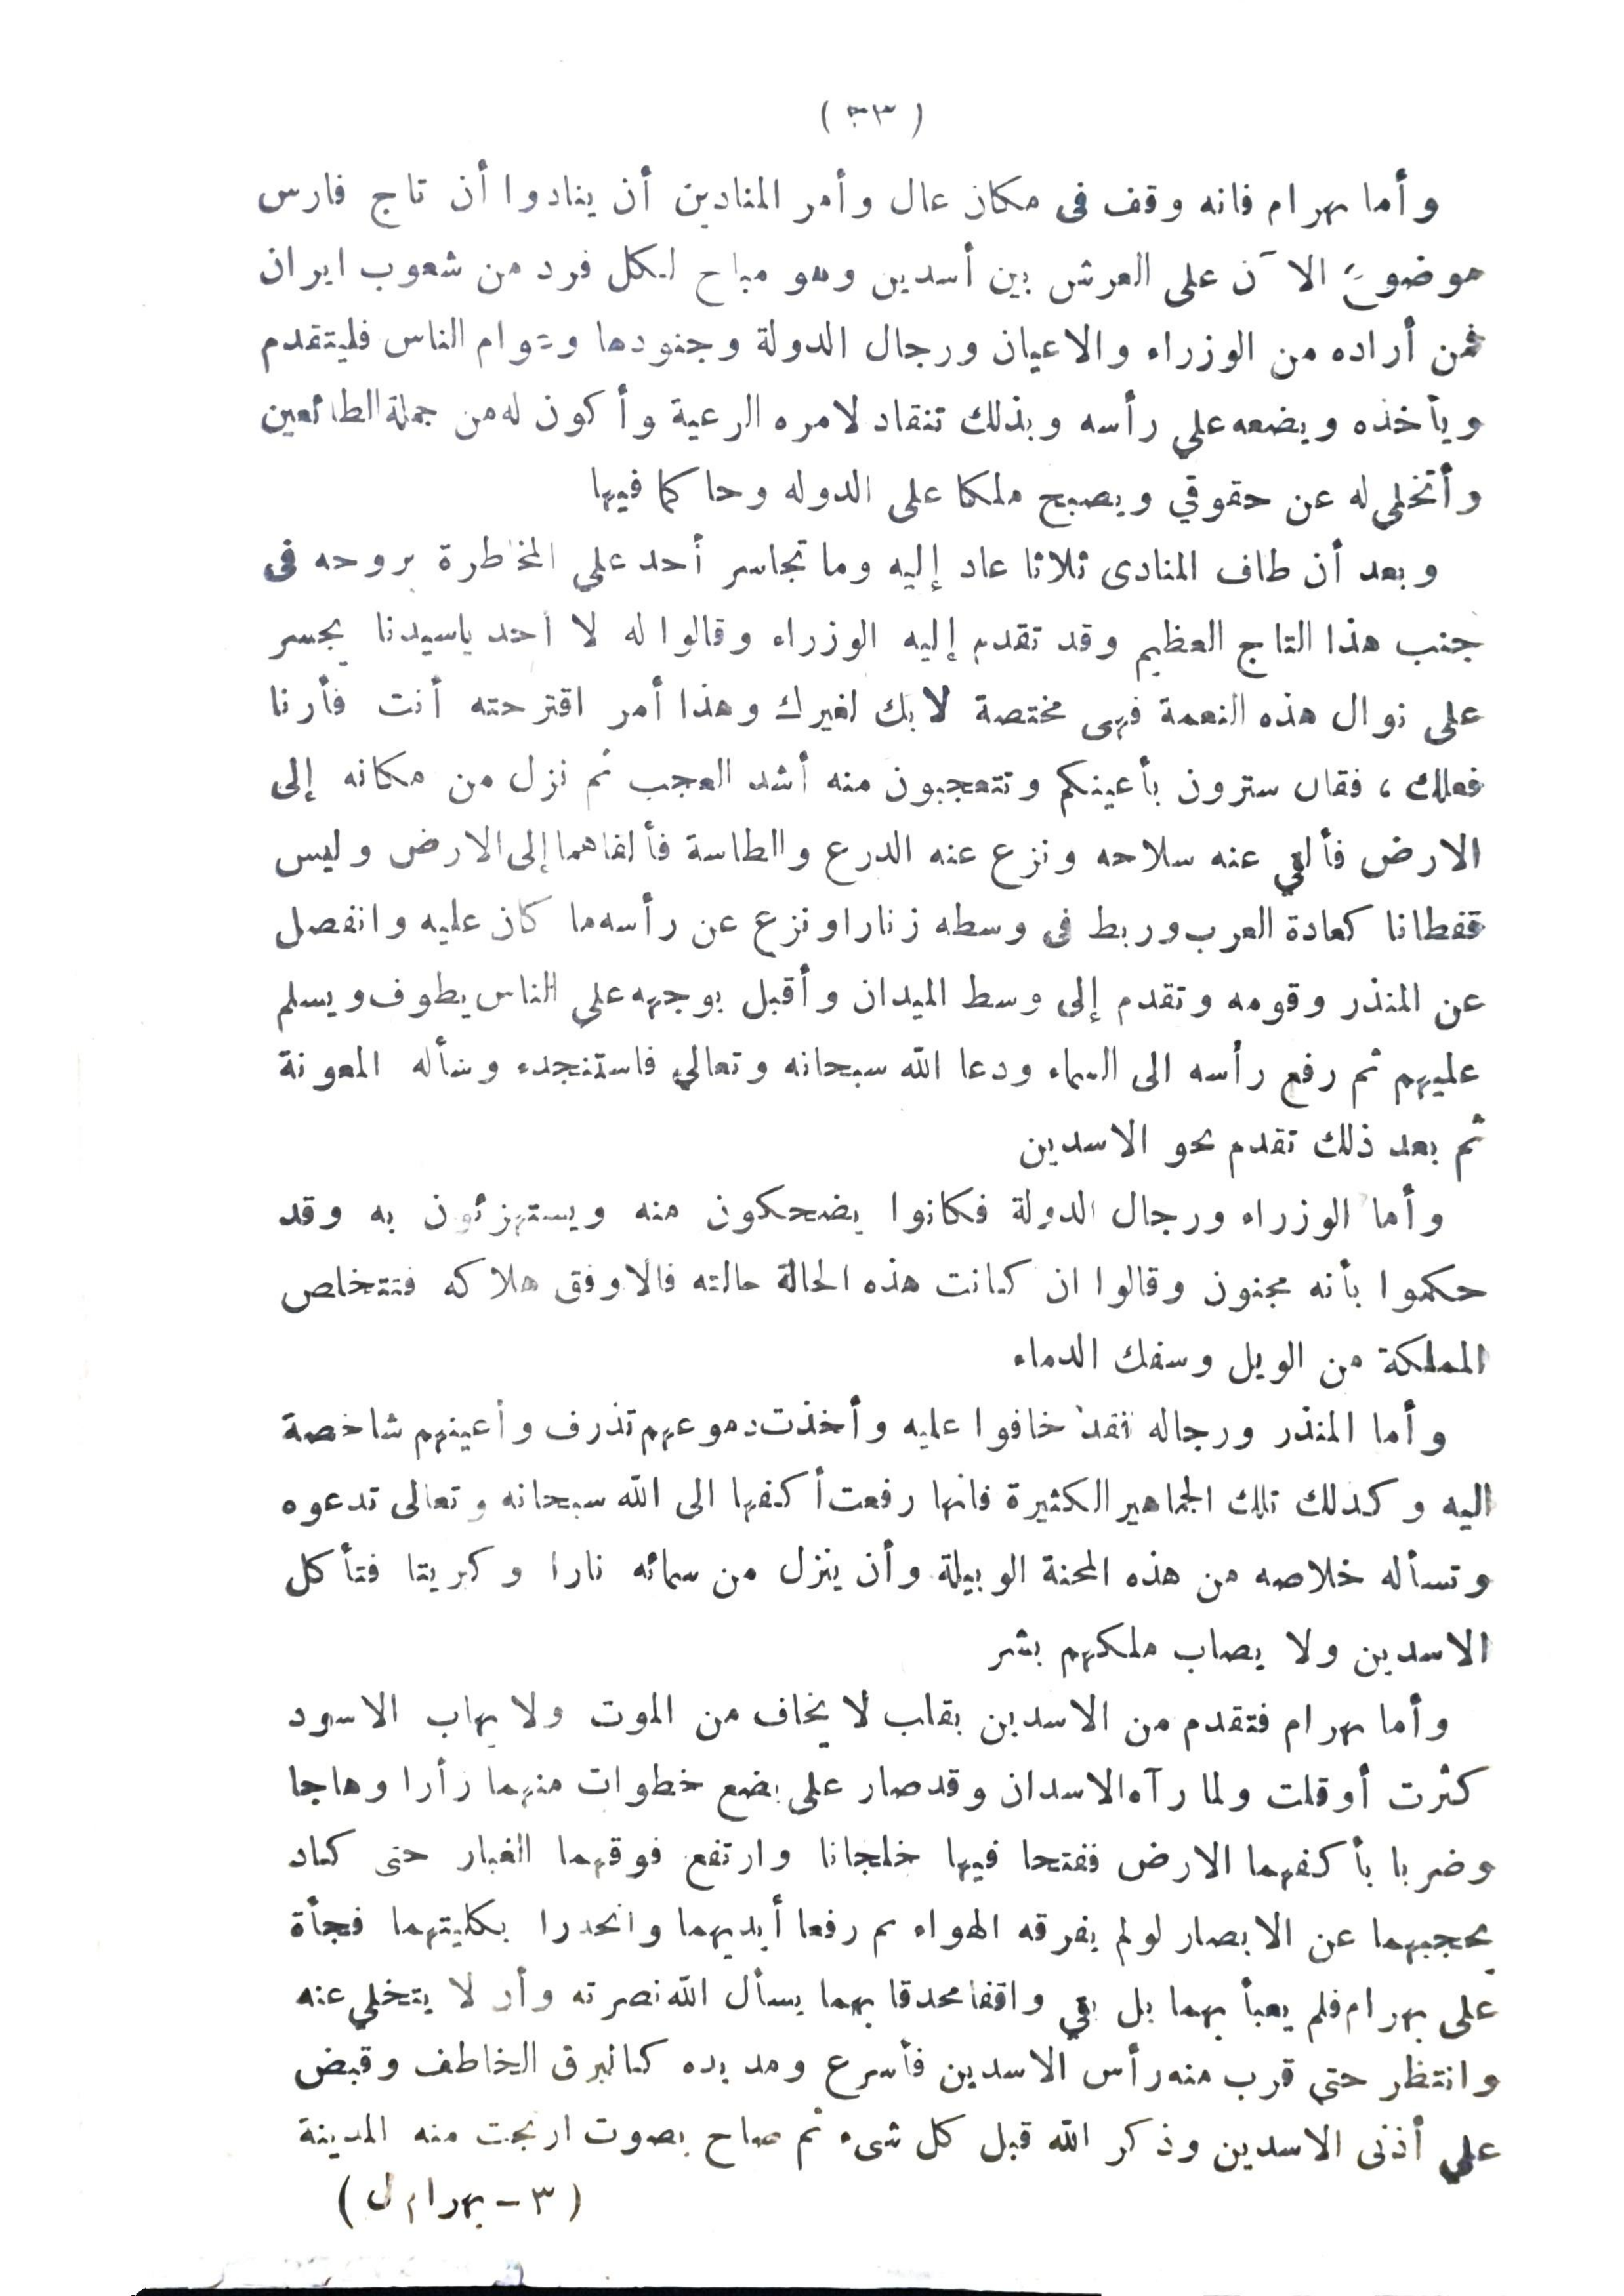 (٣٣)
وأما بهرام فانه وقف فى مكان عال وأمر المنادين أن ينادوا أن تاج فارس
موضوع الآن على العرش بين أسدين وهو مباح لكل فرد من شعوب ايران
فمن أراده من الوزراء والاعيان ورجال الدولة وجنودها وعوام الناس فليتقدم
ويأخذه ويضعه علي رأسه وبذلك تنقاد لامره الرعية وأكون له من جملة الطائعين
وأتخلى له عن حقوقي ويصبح ملكا على الدوله وحاكما فيها
وبعد أن طاف المنادى ثلاثا عاد إليه وما تجاسر أحد علي المخاطرة بروحه فى
جنب هذا التاج العظيم وقد تقدم إليه الوزراء وقالوا له لا أحد ياسيدنا يجسر
على نوال هذه النعمة فهى مختصة لابك لغيرك وهذا أمر اقترحته أنت فأرنا
فعلك، فقال سترون بأعينكم وتتعجبون منه أشد العجب ثم نزل من مكانه إلى
الارض فألقي عنه سلاحه ونزع عنه الدرع والطاسة فألقاهما إلى الارض ولبس
قفطانا كعادة العرب وربط فى وسطه زنارا ونزع عن رأسه ما كان عليه وانفصل
عن المنذر وقومه وتقدم إلى وسط الميدان وأقبل بوجهه علي الناس يطوف ويسلم
عليهم ثم رفع رأسه الى السماء ودعا الله سبحانه وتعالي فاستنجده وسأله المعونة
ثم بعد ذلك تقدم نحو الاسدين
وأما الوزراء ورجال الدولة فكانوا يضحكون منه ويستهزئون به وقد
حكموا بأنه مجنون وقالوا ان كانت هذه الحالة حالته فالاوفق هلاكه فتتخلص
المملكة من الويل وسفك الدماء
وأما المنذر ورجاله فقد خافوا عليه وأخذت دموعهم تذرف وأعينهم شاخصة
اليه وكذلك تلك الجماهير الكثيرة فانها رفعت أكفها الى الله سبحانه وتعالى تدعوه
وتسأله خلاصه من هذه المحنة الوبيلة وأن ينزل من سمائه نارا وكبريتا فتأكل
الاسدين ولا يصاب ملكهم بشر
وأما بهرام فتقدم من الاسدين بقلب لا يخاف من الموت ولا يهاب الاسود
كثرت أو قلت ولما رآه الاسدان وقد صار على بضع خطوات منهما زأرا وهاجا
وضربا بأكفهما الارض ففتحا فيها خلجانا وارتفع فوقهما الغبار حتى كاد
يحجبهما عن الابصار لو لم يفرقه الهواء ثم رفعا أيديهما وانحدرا بكليتهما فجأة
على بهرام فلم يعبأ بهما بل بقي واقفا محدقا بهما يسأل الله نصرته وأن لا يتخلي عنه
وانتظر حتي قرب منه رأس الاسدين فأسرع ومد يده كالبرق الخاطف وقبض
علي أذنى الاسدين وذكر الله قبل كل شىء ثم صاح بصوت ارتجت منه المدينة
(٣ - بهرام ل)